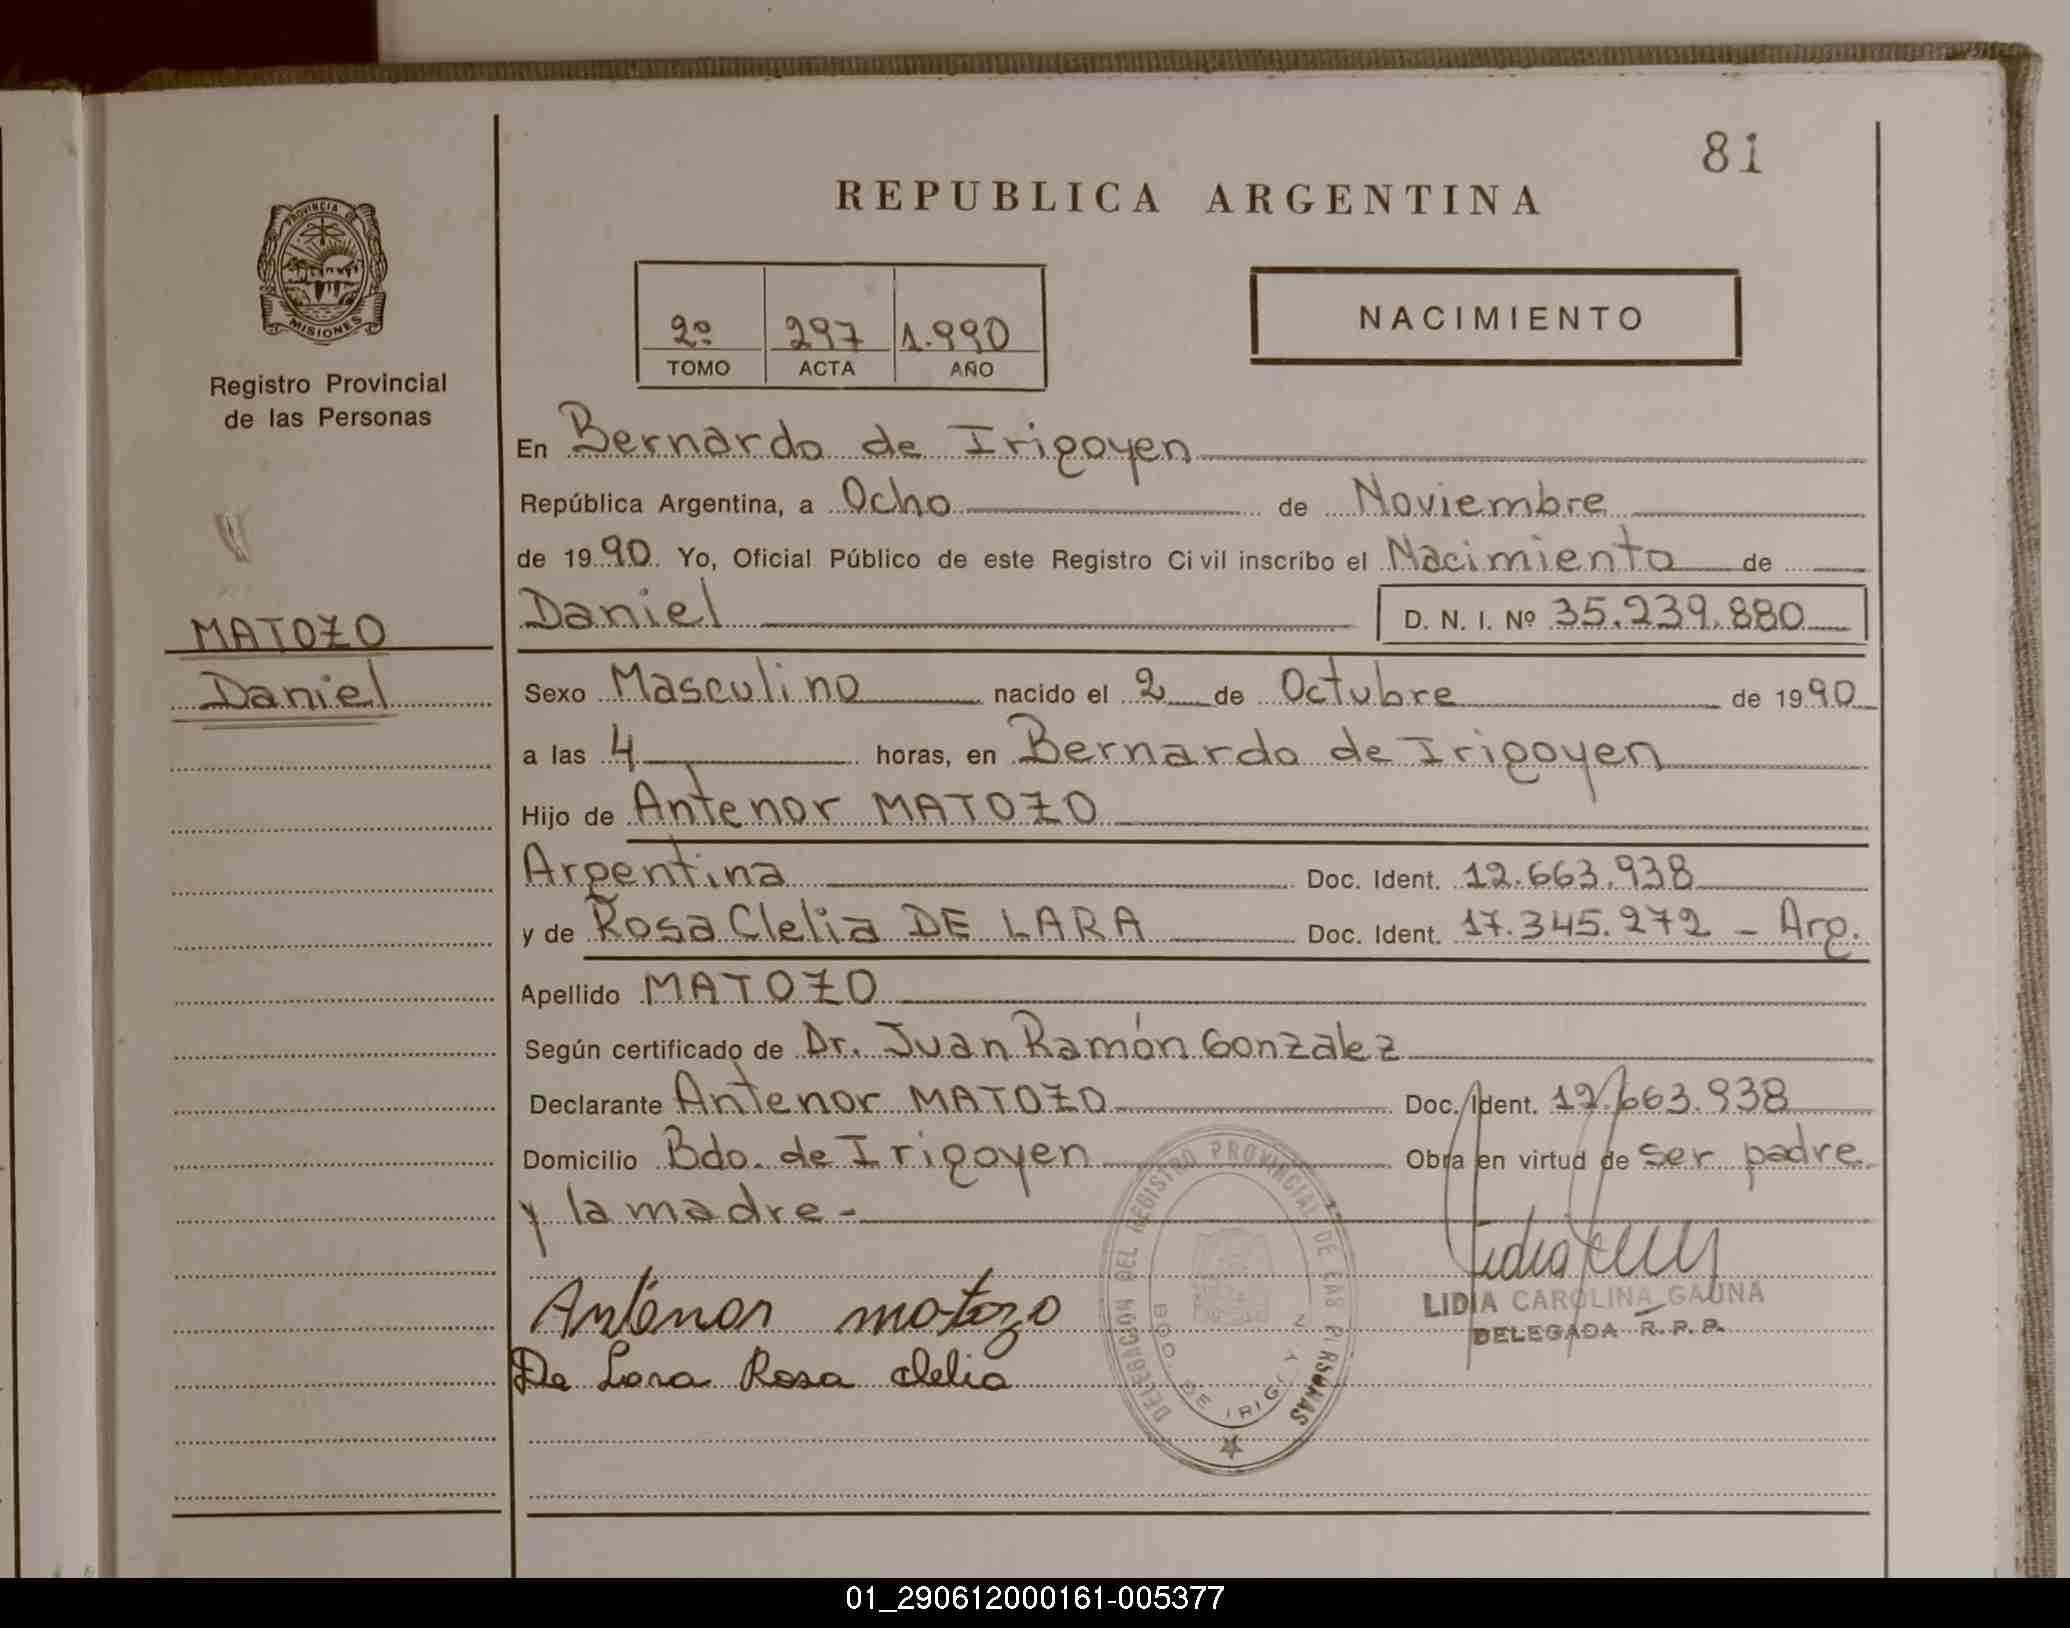 81
REPUBLICA ARGENTINA
PROVINCIA DE
MISIONES
Registro Provincial
de las Personas
2º 297 1.990
TOMO ACTA AÑO
NACIMIENTO
En Bernardo de Irigoyen
República Argentina, a Ocho de Noviembre
de 1990 Yo, Oficial Público de este Registro Civil inscribo el Nacimiento de
Daniel D. N. I. Nº 35.239.880
MATOZO
Daniel
Sexo Masculino nacido el 2 de Octubre de 1990
a las 4 horas, en Bernardo de Irigoyen
Hijo de Antenor MATOZO
Argentina Doc. Ident. 12.663.938
y de Rosa Clelia DE LARA Doc. Ident. 17.345.272 - Arg.
Apellido MATOZO
Según certificado de Dr. Juan Ramón Gonzalez
Declarante Antenor MATOZO Doc. Ident. 12.663.938
Domicilio Bdo. de Irigoyen Obra en virtud de ser padre
y la madre -
Antenor matozo
De Lara Rosa clelia
DELEGACION DEL REGISTRO PROVINCIAL DE LAS PERSONAS
BDO. DE IRIGOYEN
LIDIA CAROLINA GAUNA
DELEGADA R. P. P.
01_290612000161-005377